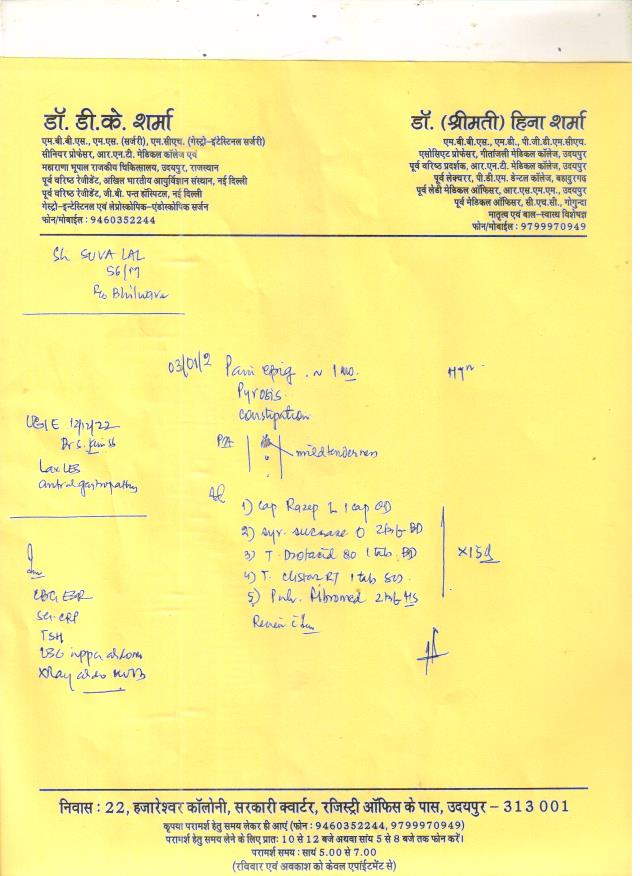 डॉ. डी.के. शर्मा
एम.बी.बी.एस., एम.एस. (सर्जरी), एम.सीएच. (गेस्ट्रो-इंटेस्टिनल सर्जरी)
सीनियर प्रोफेसर, आर.एन.टी. मेडिकल कॉलेज एवं
महाराणा भूपाल राजकीय चिकित्सालय, उदयपुर, राजस्थान
पूर्व वरिष्ठ रेजीडेंट, अखिल भारतीय आयुर्विज्ञान संस्थान, नई दिल्ली
पूर्व वरिष्ठ रेजीडेंट, जी.बी. पन्त हॉस्पिटल, नई दिल्ली
गेस्ट्रो-इन्टेस्टिनल एवं लेप्रोस्कोपिक-एंडोस्कोपिक सर्जन
फोन/मोबाईल : 9460352244
डॉ. (श्रीमती) हिना शर्मा
एम.बी.बी.एस., एम.डी., पी.जी.डी.एम.सीएच.
एसोसिएट प्रोफेसर, गीतांजली मेडिकल कॉलेज, उदयपुर
पूर्व वरिष्ठ प्रदर्शक, आर.एन.टी. मेडिकल कॉलेज, उदयपुर
पूर्व लेक्चरर, पी.डी.एम. डेन्टल कॉलेज, बहादुरगढ़
पूर्व लेडी मेडिकल ऑफिसर, आर.एस.एम.एम., उदयपुर
पूर्व मेडिकल ऑफिसर, सी.एच.सी., गोगुन्दा
मातृत्व एवं बाल-स्वास्थ विशेषज्ञ
फोन/मोबाईल : 9799970949
Sh SUVA LAL
56/M
R/o Bhilwara
03/01/2 Pain epig. ~ 1 mo.
Pyrosis
constipation
P/A mild tenderness
UGIE 12/12/22
Dr S.
Lax LES
antral gastropathy
Adv
1) Cap Razep L 1 cap OD
2) Syr. Sucrase O 2 tsf BD
3) T. Drotacid 80 1 tab BD
4) T. 1 tab SOS
5) Pulv. 2 tsf HS
x 15d
Review c
CBC ESR
Se. CRP
TSH
USG upper abdomen
Xray
निवास : 22, हजारेश्वर कॉलोनी, सरकारी क्वार्टर, रजिस्ट्री ऑफिस के पास, उदयपुर – 313 001
कृपया परामर्श हेतु समय लेकर ही आऐं (फोन : 9460352244, 9799970949)
परामर्श हेतु समय लेने के लिए प्रातः 10 से 12 बजे अथवा सांय 5 से 8 बजे तक फोन करें।
परामर्श समय : सायं 5.00 से 7.00
(रविवार एवं अवकाश को केवल एपांईटमेंट से)